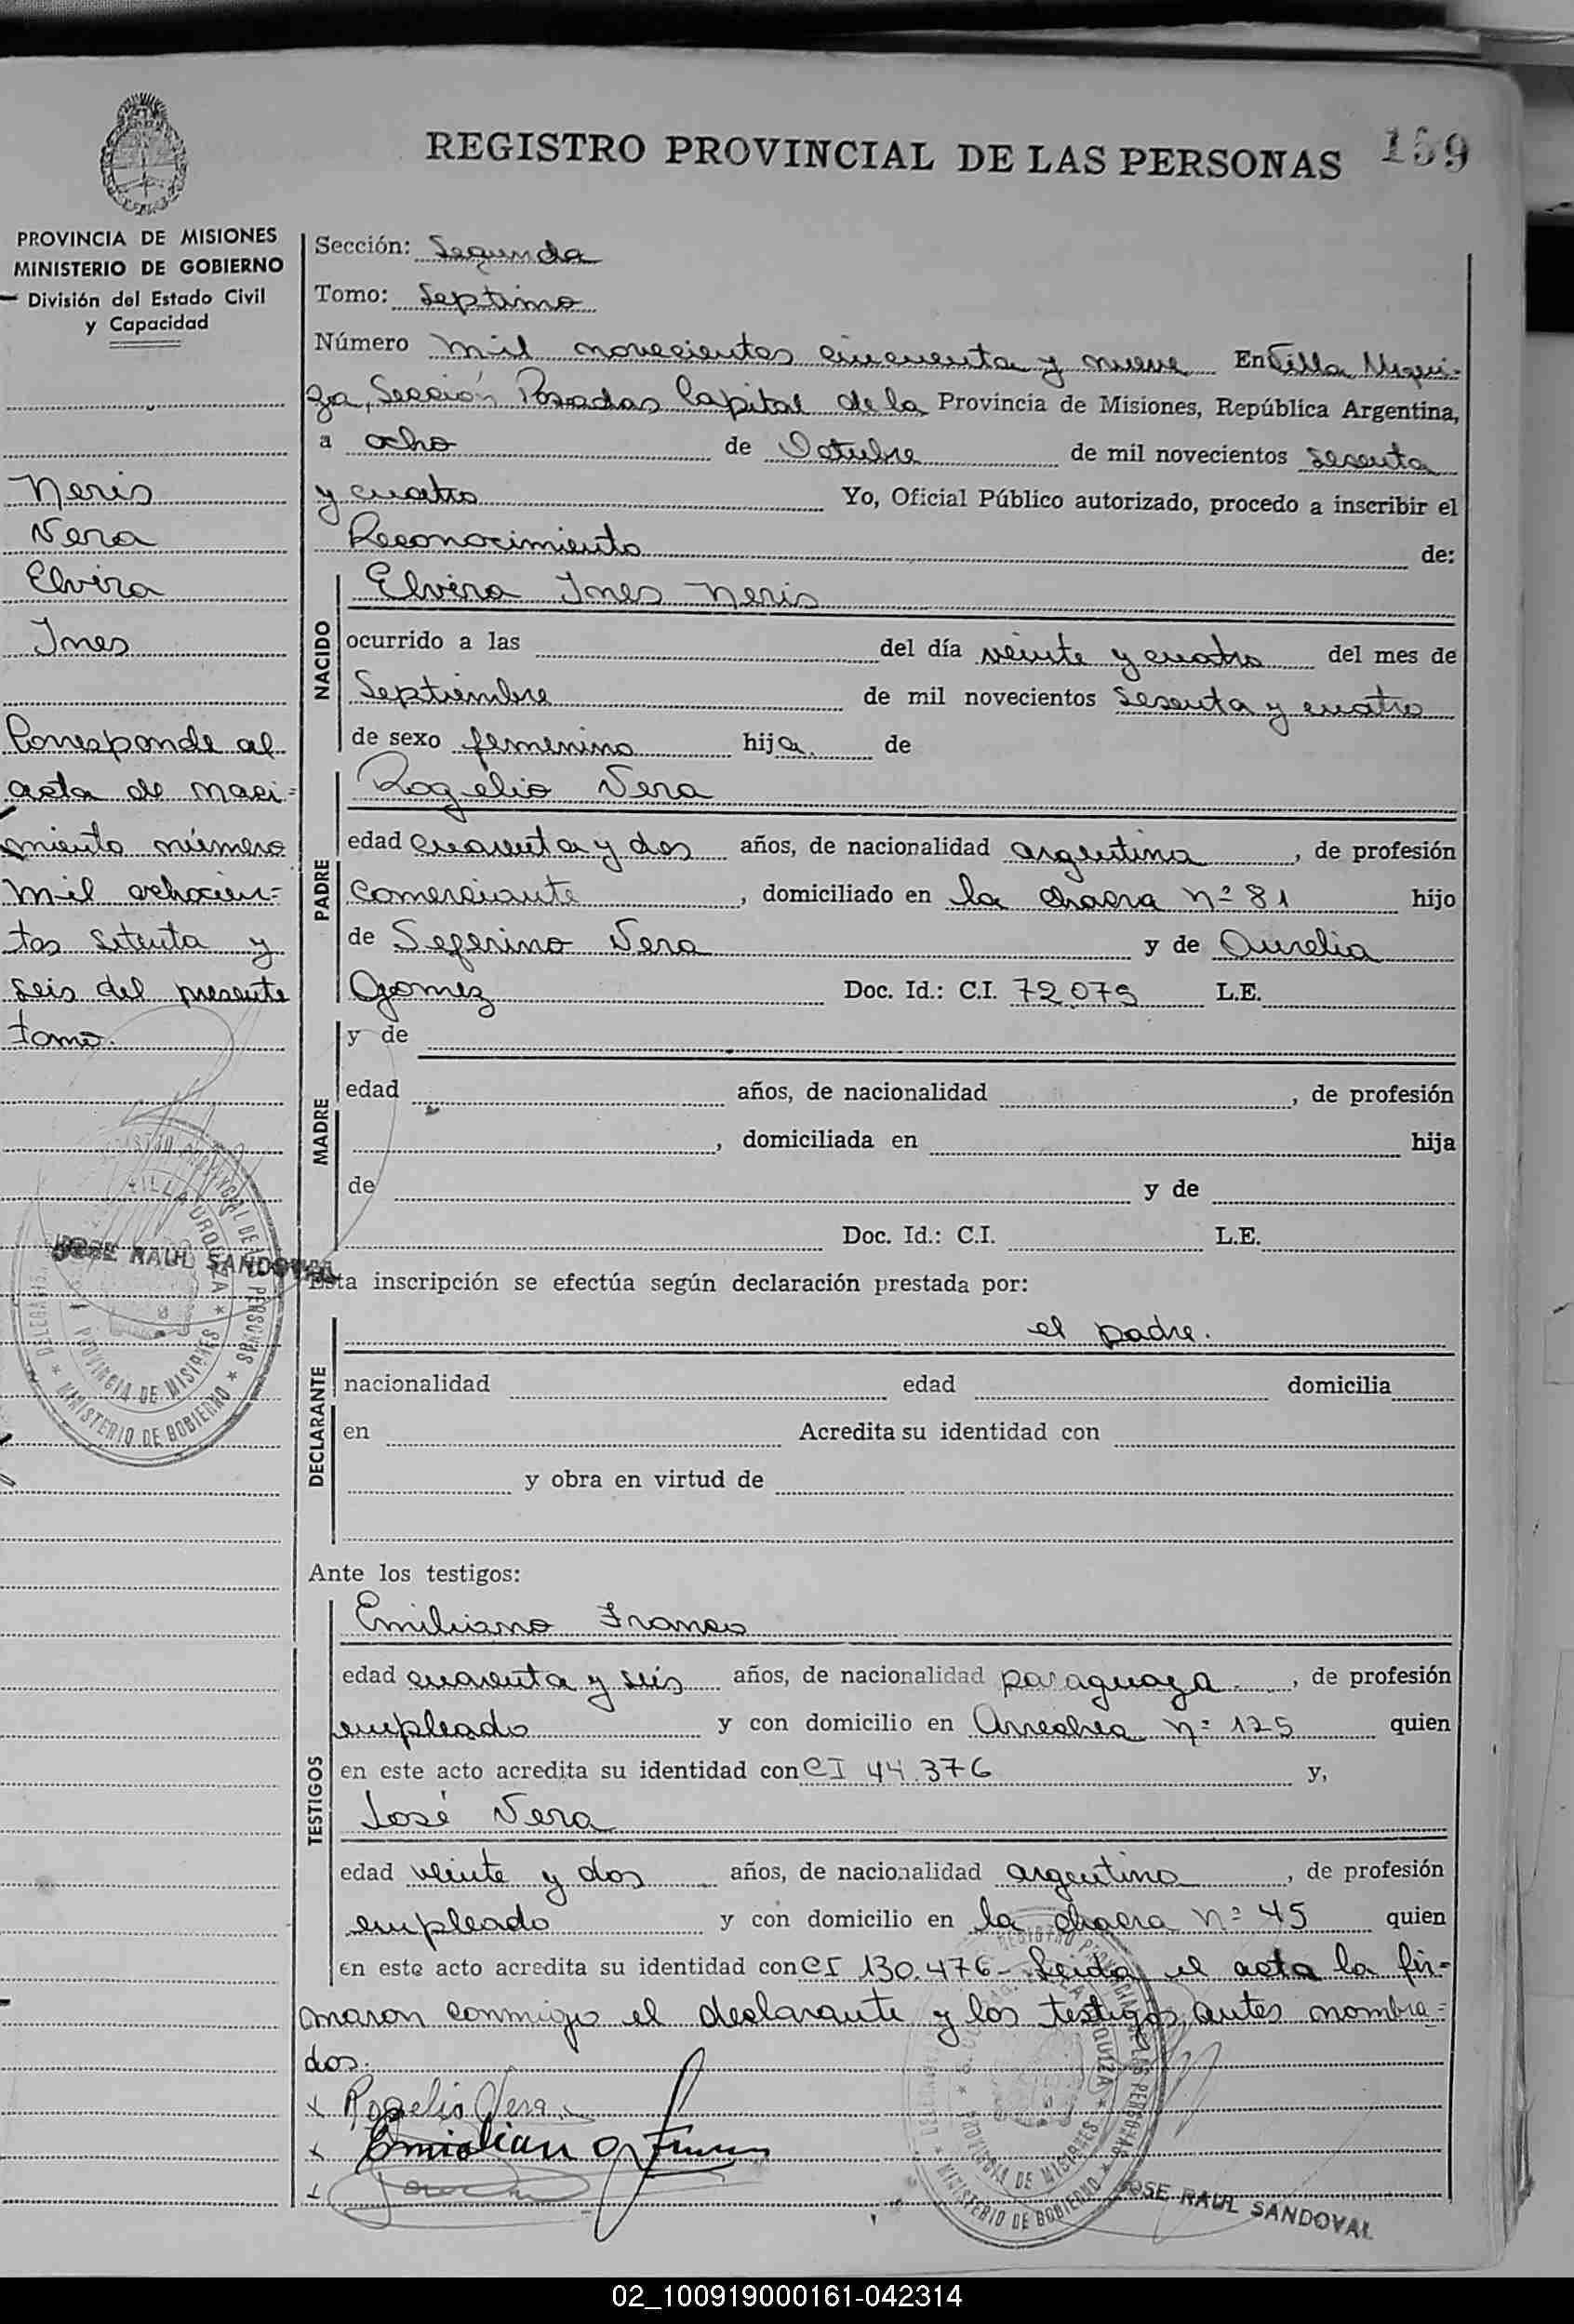 REGISTRO PROVINCIAL DE LAS PERSONAS 159
PROVINCIA DE MISIONES
MINISTERIO DE GOBIERNO
División del Estado Civil
y Capacidad
Neris
Vera
Elvira
Ines
Corresponde al
acta de naci=
miento número
mil ochocien=
tos setenta y
seis del presente
tomo.
REGISTRO PROVINCIAL DE LAS PERSONAS
VILLA URQUIZA
PROVINCIA DE MISIONES
MINISTERIO DE GOBIERNO
JOSE RAUL SANDOVAL
Sección: Segunda
Tomo: Septimo
Número mil novecientos cincuenta y nueve En Villa Urqui=
za, Sección Posadas Capital de la Provincia de Misiones, República Argentina,
a ocho de Octubre de mil novecientos sesenta
y cuatro Yo, Oficial Público autorizado, procedo a inscribir el
Reconocimiento de:
NACIDO
Elvira Ines Neris
ocurrido a las del día veinte y cuatro del mes de
Septiembre de mil novecientos sesenta y cuatro
de sexo femenino hija de
PADRE
Rogelio Vera
edad cuarenta y dos años, de nacionalidad argentina, de profesión
comerciante, domiciliado en la chacra nº 81 hijo
de Seferino Vera y de Aurelia
Gomez Doc. Id.: C.I. 72.075 L.E.
MADRE
y de
edad años, de nacionalidad , de profesión
, domiciliada en hija
de y de
Doc. Id.: C.I. L.E.
Esta inscripción se efectúa según declaración prestada por:
DECLARANTE
el padre.
nacionalidad edad domicilia
en Acredita su identidad con
y obra en virtud de
Ante los testigos:
TESTIGOS
Emiliano Franco
edad cuarenta y seis años, de nacionalidad paraguaya, de profesión
empleado y con domicilio en Arrechea nº 125 quien
en este acto acredita su identidad con CI 44.376 y,
José Vera
edad veinte y dos años, de nacionalidad argentina, de profesión
empleado y con domicilio en la chacra nº 45 quien
en este acto acredita su identidad con CI 130.476- Leida el acta la fir=
maron conmigo el declarante y los testigos antes nombra=
dos.
x Rogelio Vera
x Emiliano Franco
x
REGISTRO PROVINCIAL DE LAS PERSONAS
PROVINCIA DE MISIONES
MINISTERIO DE GOBIERNO
JOSE RAUL SANDOVAL
02_100919000161-042314